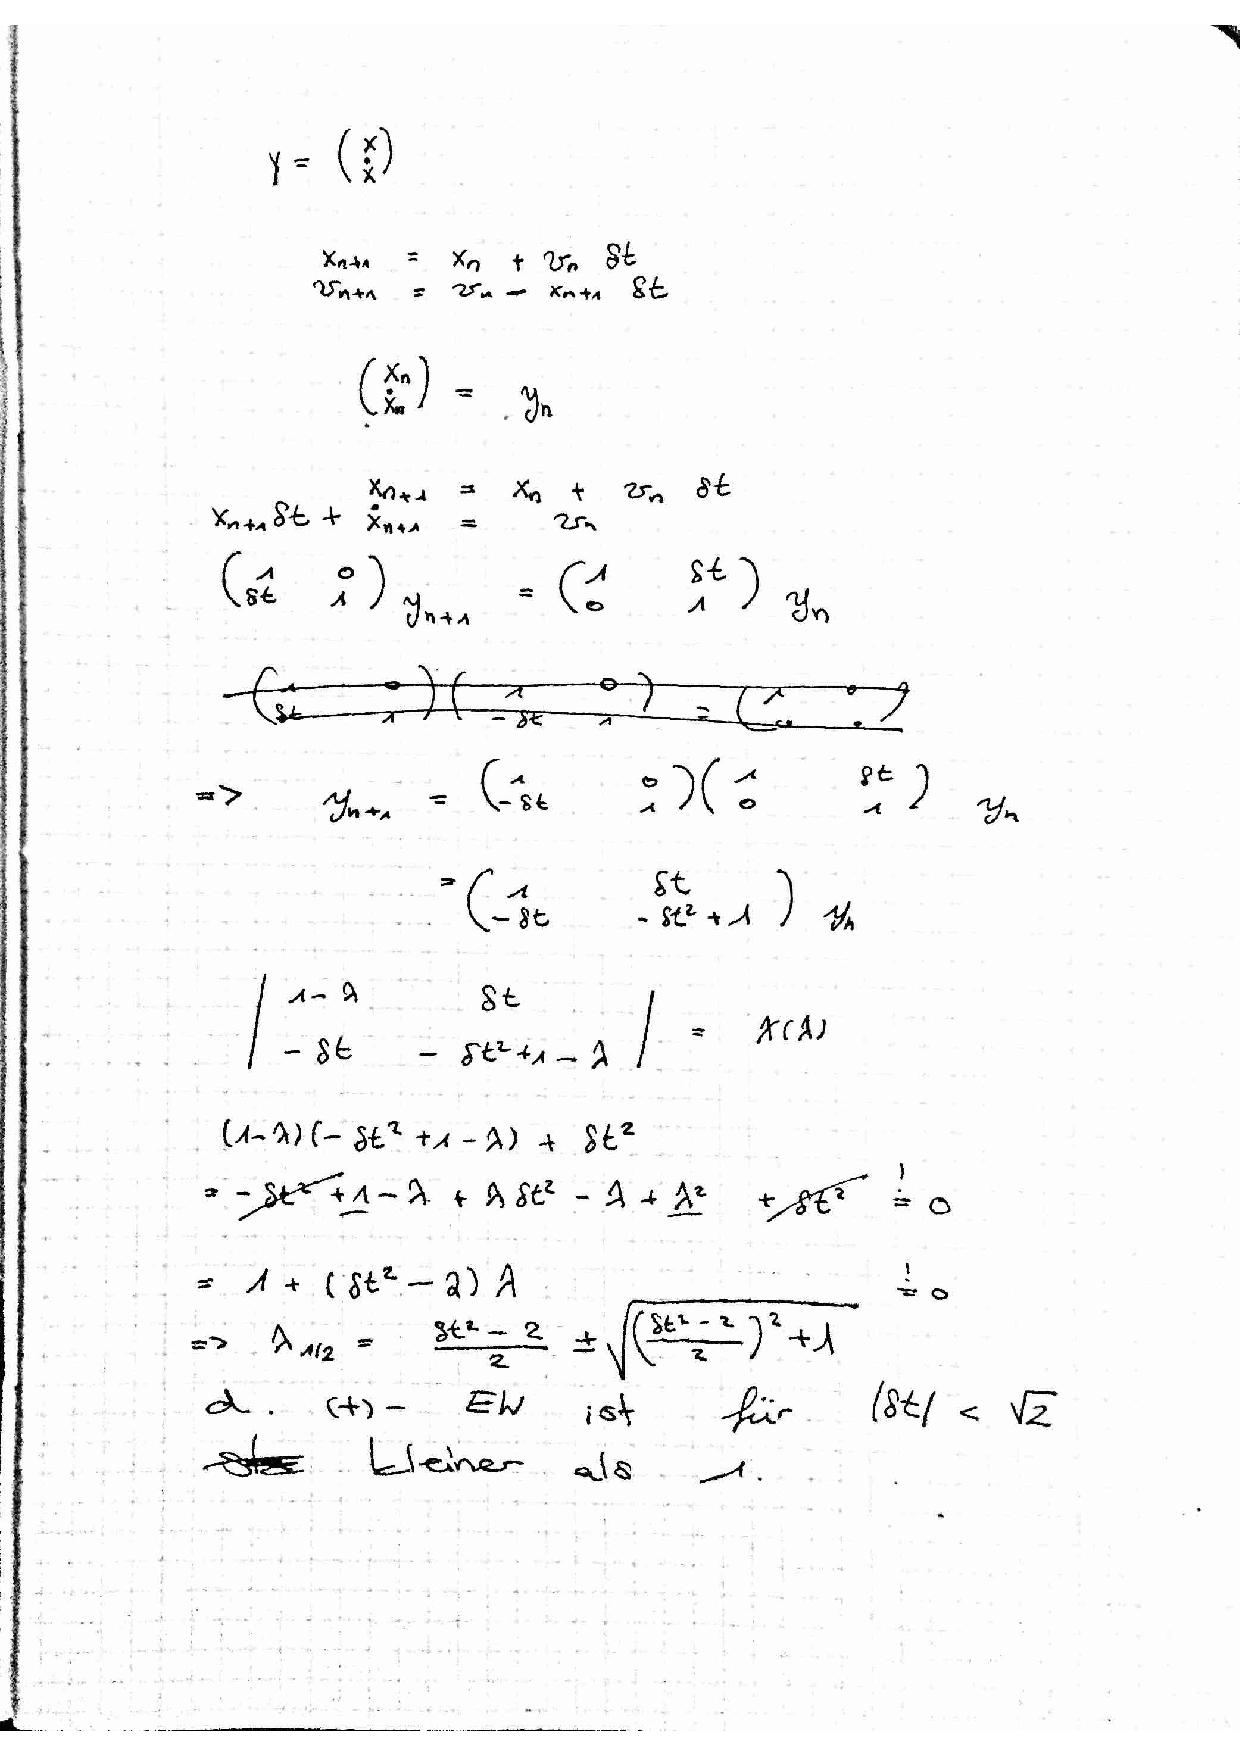 Y = (x ẋ)
xₙ₊₁ = xₙ + vₙ δt
vₙ₊₁ = vₙ − xₙ₊₁ δt
(xₙ ẋₙ) = yₙ
xₙ₊₁ = xₙ + vₙ δt
xₙ₊₁ δt + ẋₙ₊₁ = vₙ
(1 0 δt 1) yₙ₊₁ = (1 δt 0 1) yₙ
(1 0 δt 1)(1 0 −δt 1) = (1 0 )
=> yₙ₊₁ = (1 0 −δt 1)(1 δt 0 1) yₙ
= (1 δt −δt −δt² + 1) yₙ
|1−λ δt −δt −δt²+1−λ| = χ(λ)
(1−λ)(−δt² +1 −λ) + δt²
= −δt² +1 −λ + λ δt² − λ + λ² + δt² != 0
= 1 + (δt² − 2) λ != 0
=> λ₁/₂ = (δt² − 2)/2 ± √(((δt² − 2)/2)² + 1)
d. (+) − EW ist für |δt| < √2
kleiner als 1.